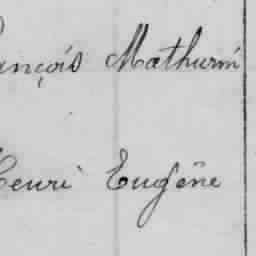 ançois Mathurin
Henri Eugène